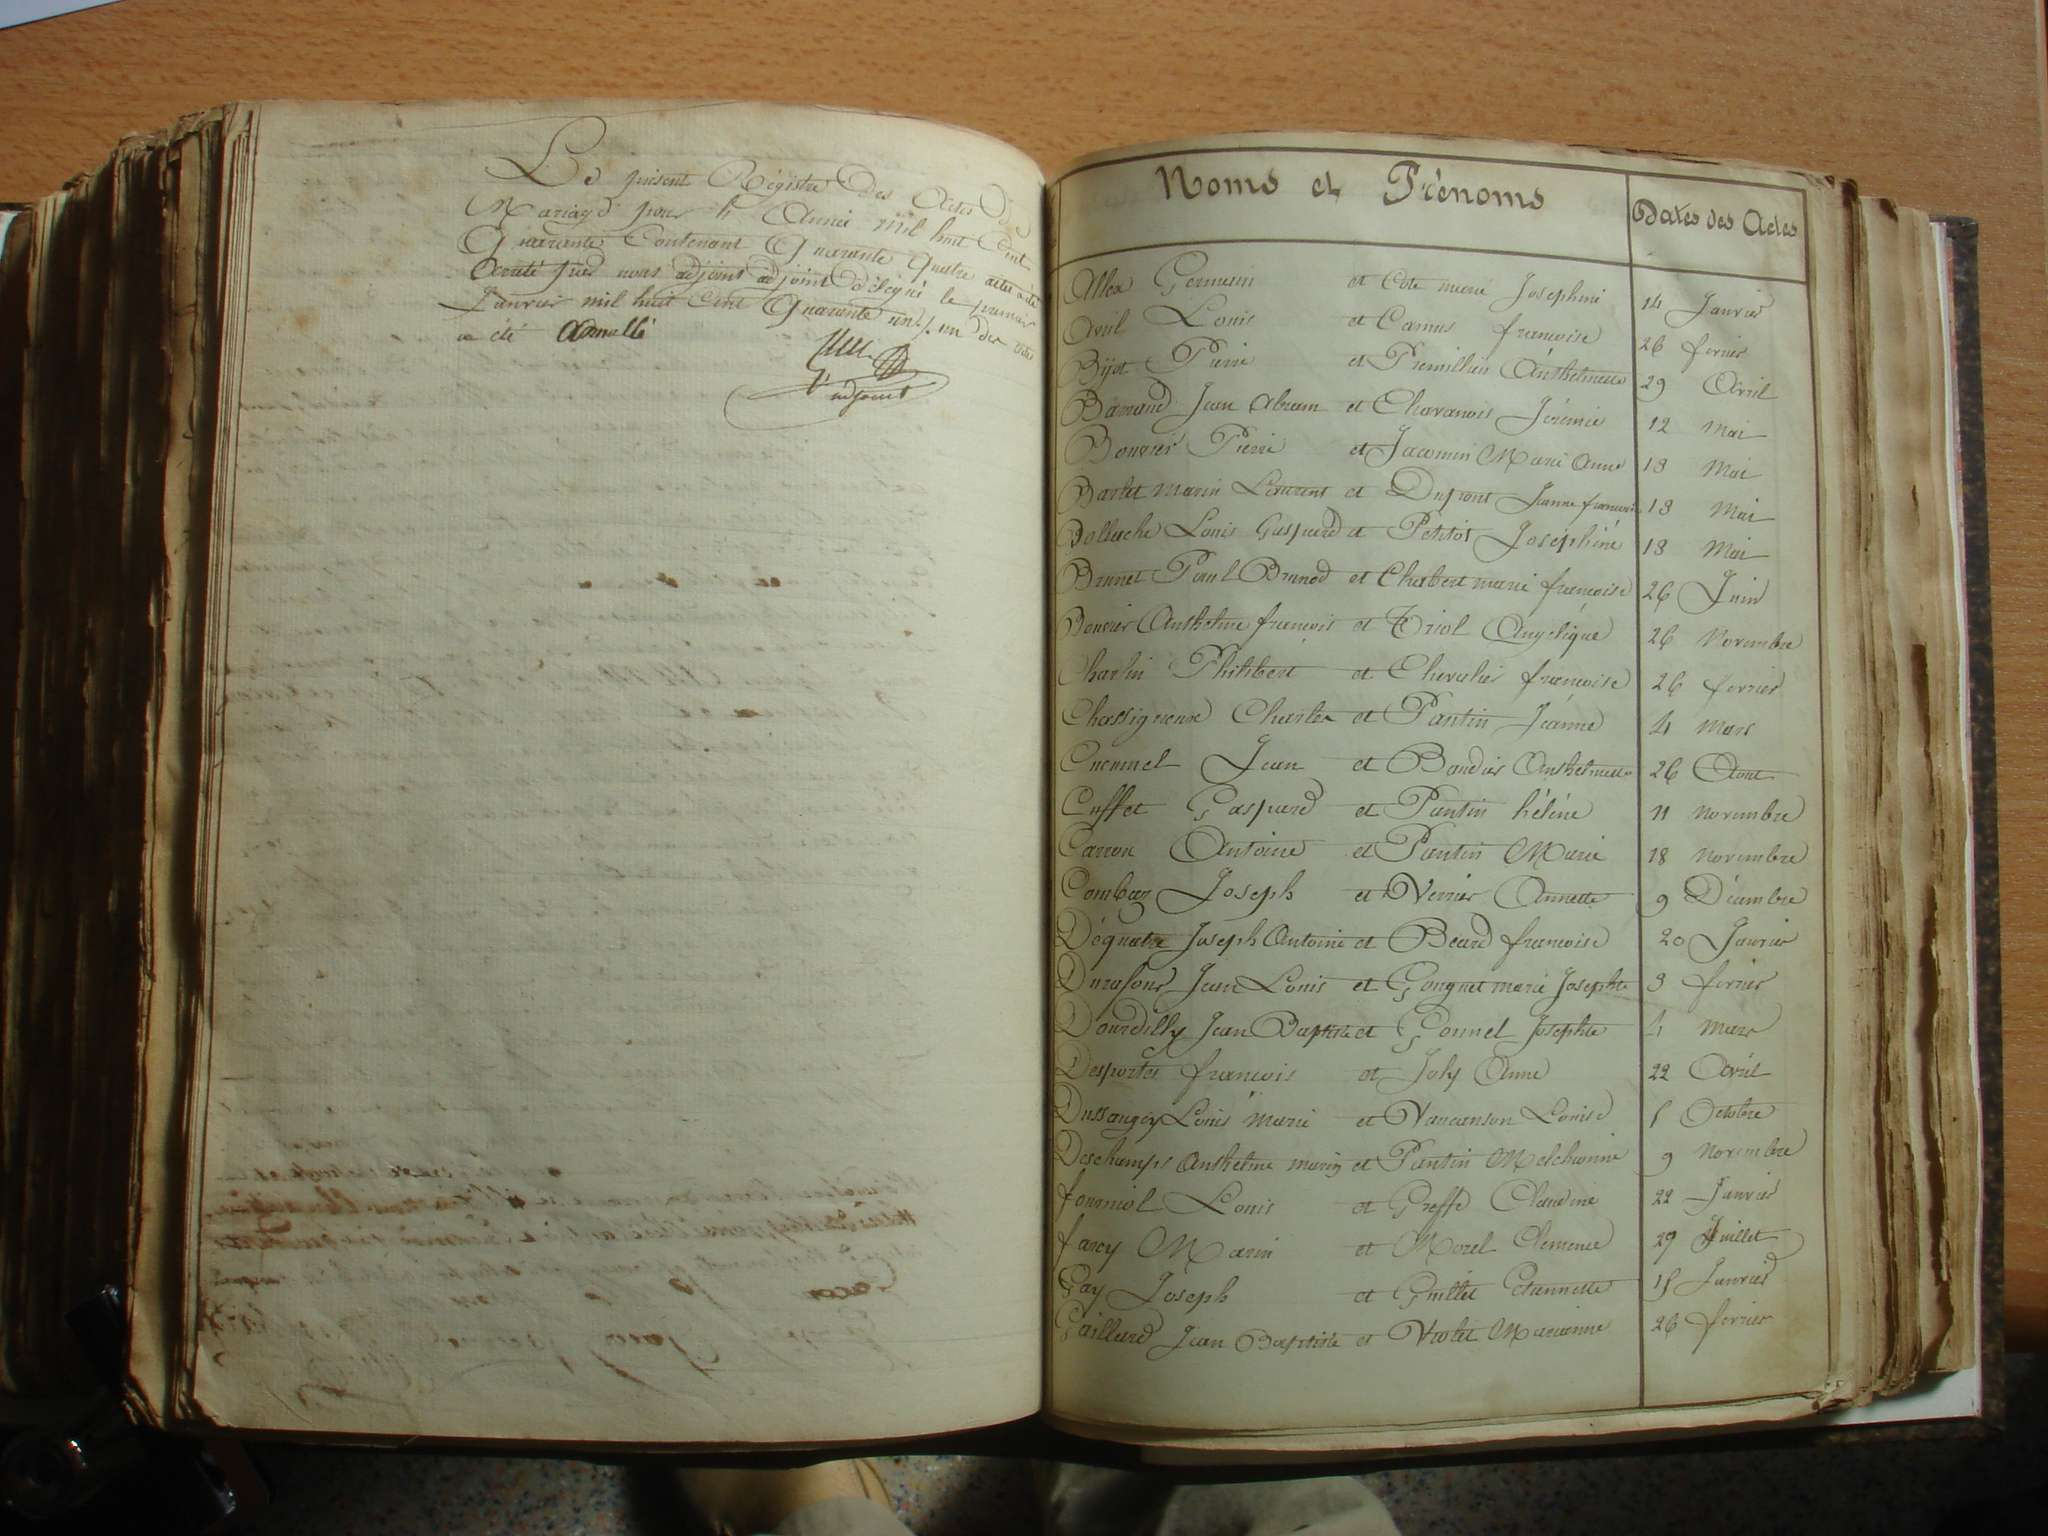 Le présent Régistre Des Actes De
Mariage pour l'Année Mil huit Cent
Quarante Contenant Quarante Quatre actes a été
arrêté par nous adjoint adjoint délégué le premier
Janvier mil huit Cent Quarante un
a été annullé
L'adjoint
Noms et Prénoms
Dates des Actes
Allex Germain et Cote marie Joséphine 14 Janvier
Avril Louis et Camus francoise 26 fevrier
Bijot Pierre et Premillieu Anthelmette 29 Avril
Jean Abram et Chavanois Jérémie 12 Mai
Bouvier Pierre et Jacomin Marie Anne 13 Mai
Barlet Marin Laurent et Dupont Jeanne francoise 13 Mai
Bollache Louis Gaspard et Petitot Joséphine 18 Mai
Brunet Paul Brunod et Chabert marie francoise 26 Juin
Bouvier Anthelme francois et Triol Angélique 26 Novembre
Charlin Philibert et Chevalier francoise 26 fevrier
Chassigneux Charles et Pantin Jeanne 4 Mars
Jean et Baudier Anthelmette 26 Aout
Cuffet Gaspard et Pantin hélène 11 Novembre
Carron Antoine et Pantin Marie 18 Novembre
Combaz Joseph et Verrier Annette 9 Décembre
Déquatre Joseph Antoine et Beard francoise 20 Janvier
Durafour Jean Louis et Gonguet marie Josephte 3 fevrier
Dourdilly Jean Baptiste et Gonnel Josephte 4 Mars
Desportes francois et Joly Anne 22 Avril
Dussangey Louis Marie et Vaucanson Louise 1 Octobre
Deschamps Anthelme marin et Pantin Melchionne 9 Novembre
fourniol Louis et Greffe Claudine 22 Janvier
farcy Marin et Morel Clemence 29 Juillet
Gay Joseph et Guillet Etannette 15 Janvier
Gaillard Jean Baptiste et Violet Marianne 26 fevrier